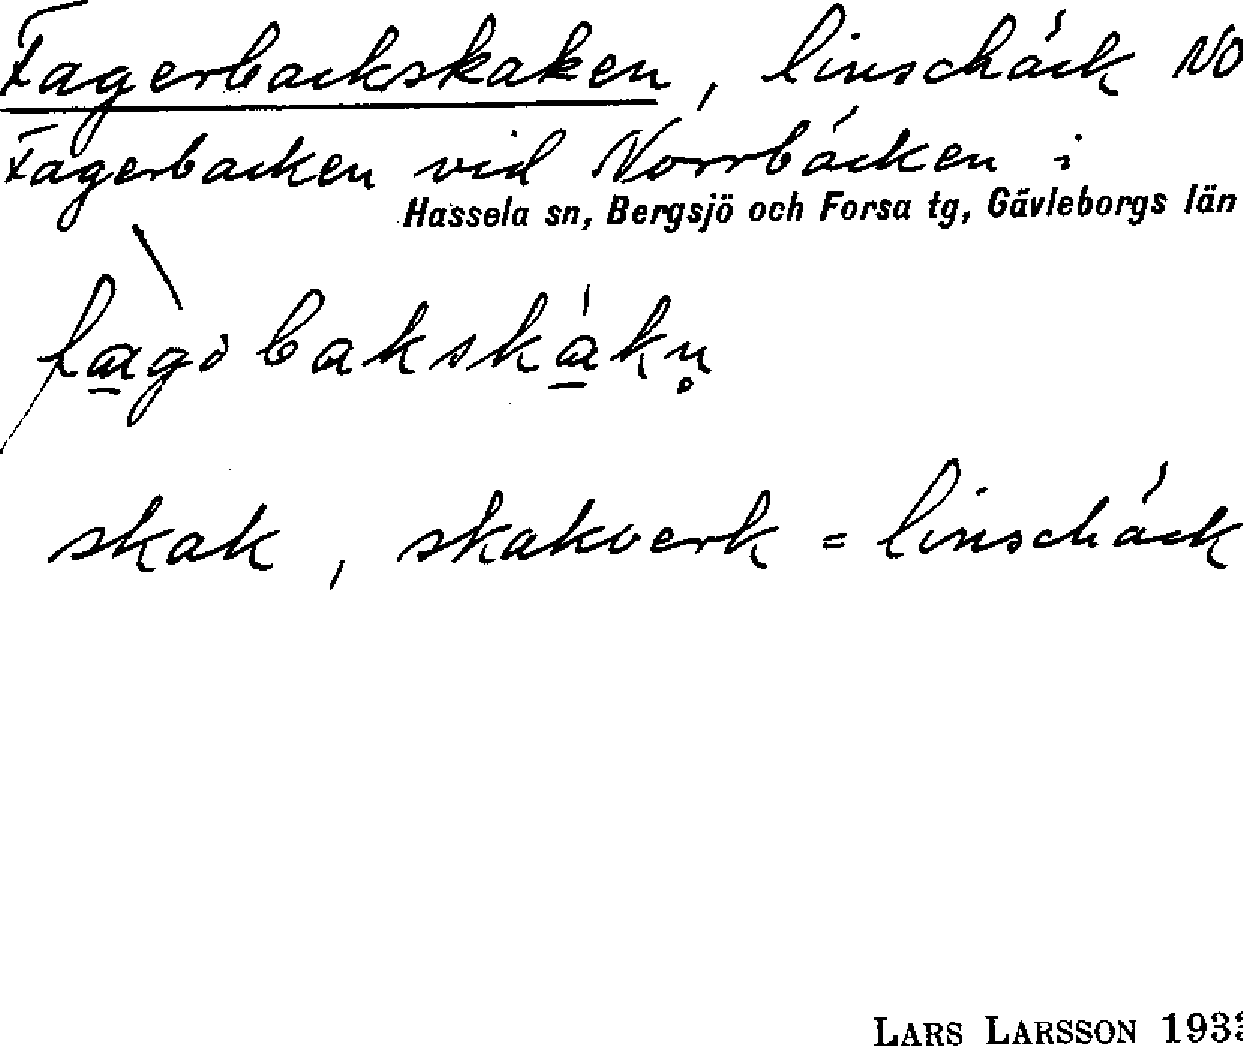 Fagerbackskaken, linschäck NO
Fagerbacken vid Norrbäcken i
Hassela sn, Bergsjö och Forsa tg, Gävleborgs län
skak, skakverk = linschäck
LARS LARSSON 1933